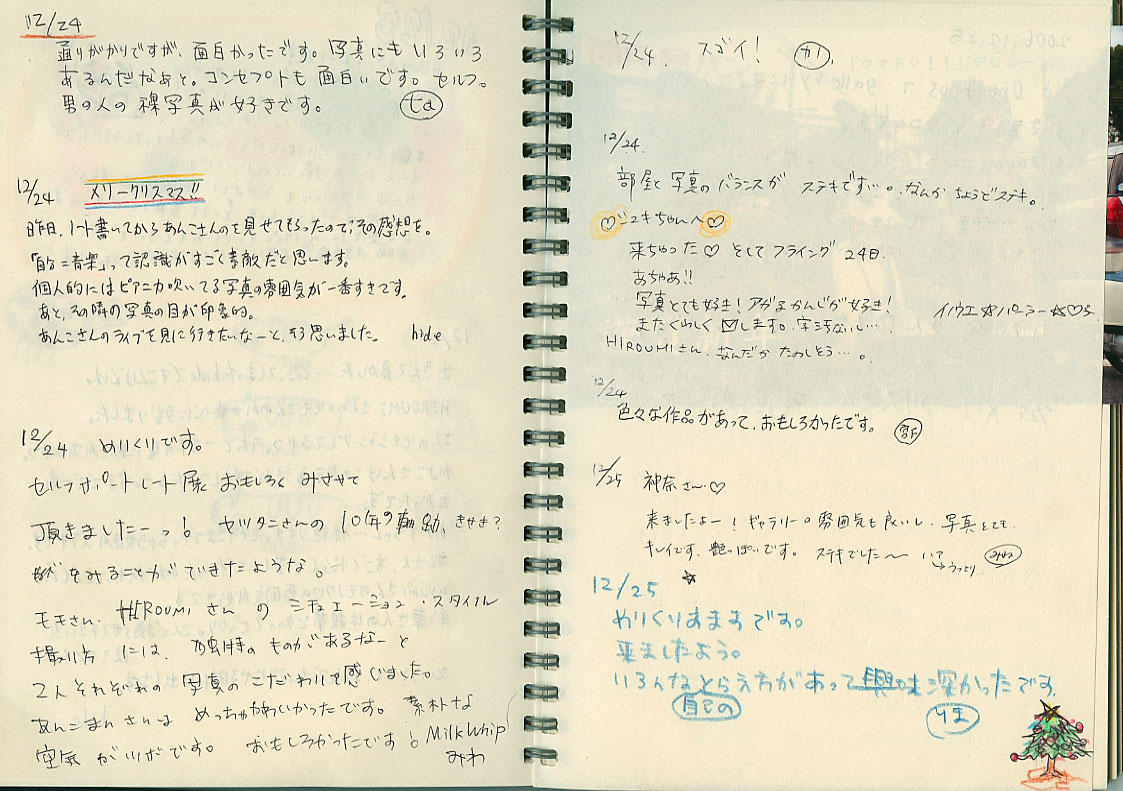 12/24
通りがかりですが、面白かったです。写真にもいろいろ
あるんだなぁと。コンセプトも面白いです。セルフ。
男の人の裸写真が好きです。
12/24 メリークリスマス!!
昨日、ノート書いてからあんこさんのを見せてもらったのでその感想を。
「自分=音楽」って認識がすごく素敵だと思います。
個人的にはピアニカ吹いてる写真の雰囲気が一番すきです。
あと、その隣の写真の目が印象的。
あんこさんのライブを見に行きたいなーと、そう思いました。 hide
12/24 めりくりです。
セルフポートレート展 おもしろく みさせて
頂きましたーっ! セツタニさんの 10年の軌跡、きせき?
をみることができたような。
モモさん、HIROUMIさん の シチュエーション・スタイル
撮り方 には、独特の ものがあるなーと
2人それぞれの 写真の こだわりを感じました。
あんこまん さんは めっちゃかわいかったです。素朴な
空気 がツボです。 おもしろかったです! Milkwhip
みわ
12/24. スゴイ! カノ
12/24.
部屋と写真のバランスが ステキです…。なんか ちょうどステキ。
♡ユキちゃんへ♡
来ちゃった♡ そして フライング 24日
あちゃぁ!!
写真とても好き! アガるかんじが好き!
またくわしく ✉します。字きたないし…
HIROUMIさん、なんだか たのしそう…。
12/24
色々な作品があって、おもしろかったです。
12/25 神奈さん♡
来ましたよー! ギャラリーの雰囲気も良いし、写真とても
キレイです、艶っぽいです。 ステキでした〜 いつ
→うっとり みわ
12/25
めりくりあままです。
来ましたよう。
いろんなとらえ方があって興味深かったです。
自己の りま